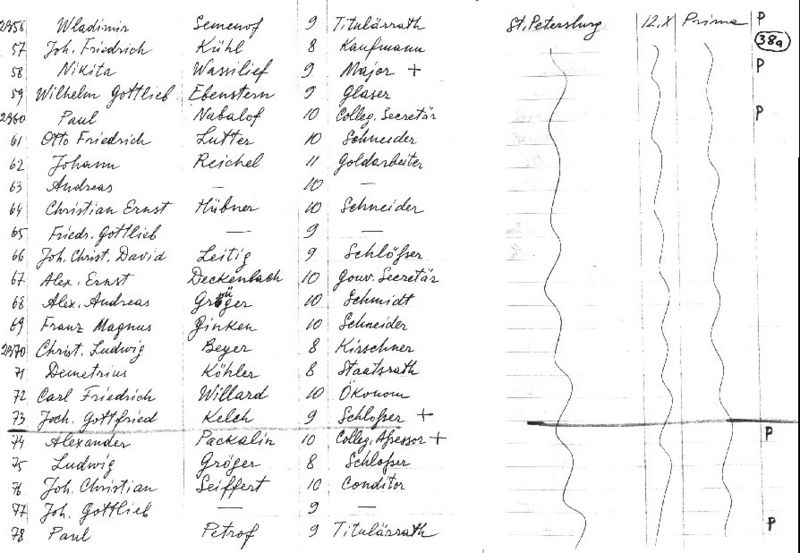 2956 Wladimir Semenof 9 Titulärrath St. Petersburg 12.X Prima P
57 Joh. Friedrich Kühl 8 Kaufmann 38a
58 Nikita Wassilief 9 Major + P
59 Wilhelm Gottlieb Ebenstern 9 Glaser
2960 Paul Nabalof 10 Colleg. Secretär P
61 Otto Friedrich Lutter 10 Schneider
62 Johann Reichel 11 Goldarbeiter
63 Andreas — 10 —
64 Christian Ernst Hübner 10 Schneider
65 Friedr. Gottlieb — 9 —
66 Joh. Christ. David Leitig 9 Schlößer
67 Alex. Ernst Deckenbach 10 Gouv. Secretär
68 Alex. Andreas Gröger 10 Schmidt
69 Franz Magnus Ginken 10 Schneider
2970 Christ. Ludwig Beyer 8 Kirschner
71 Demetrius Köhler 8 Staatsrath
72 Carl Friedrich Willard 10 Ökonom
73 Joch. Gottfried Kelch 9 Schloßer +
74 Alexander Packalin 10 Colleg. Aßessor + P
75 Ludwig Gröger 8 Schloßer
76 Joh. Christian Seiffert 10 Conditor
77 Joh. Gottlieb — 9 —
78 Paul Petrof 9 Titulärrath P